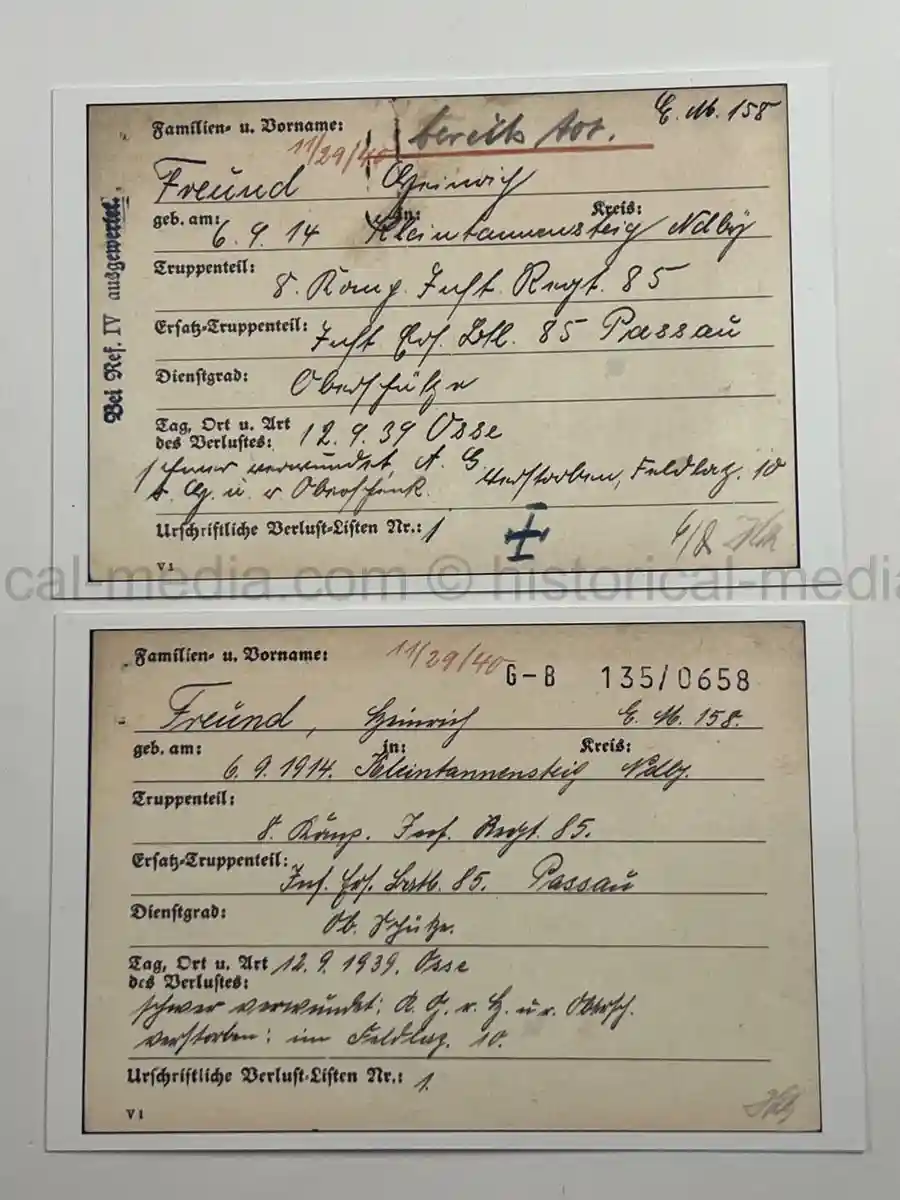 E. M. 158
Familien- u. Vorname: bereits tot.
11/29/40
Freund Heinrich
geb. am: in: Kreis:
6. 9. 14 Kleintannensteig Ndby
Truppenteil:
8. Komp. Inft. Regt. 85
Ersatz-Truppenteil:
Inft. Ers. Btl. 85 Passau
Dienstgrad:
Oberschütze
Tag, Ort u. Art 12. 9. 39 Osse
des Verlustes:
schwer verwundet, A. G. verstorben, Feldlaz. 10
u. r Oberschenk.
Urschriftliche Verlust-Listen Nr.: 1
V 1
Bei Ref. IV ausgewertet.
cal-media.com © historical-media
Familien- u. Vorname: 11/29/40
G-B 135/0658
Freund, Heinrich E. M. 158.
geb. am: in: Kreis:
6. 9. 1914. Kleintannensteig Ndby.
Truppenteil:
8. Komp. Inf. Regt. 85.
Ersatz-Truppenteil:
Inf. Ers. Batl. 85. Passau
Dienstgrad:
Ob. Schütze.
Tag, Ort u. Art 12. 9. 1939. Osse
des Verlustes:
schwer verwundet: A. G. r. H. u. r. Obersch.
verstorben: im Feldlaz. 10.
Urschriftliche Verlust-Listen Nr.: 1.
V 1